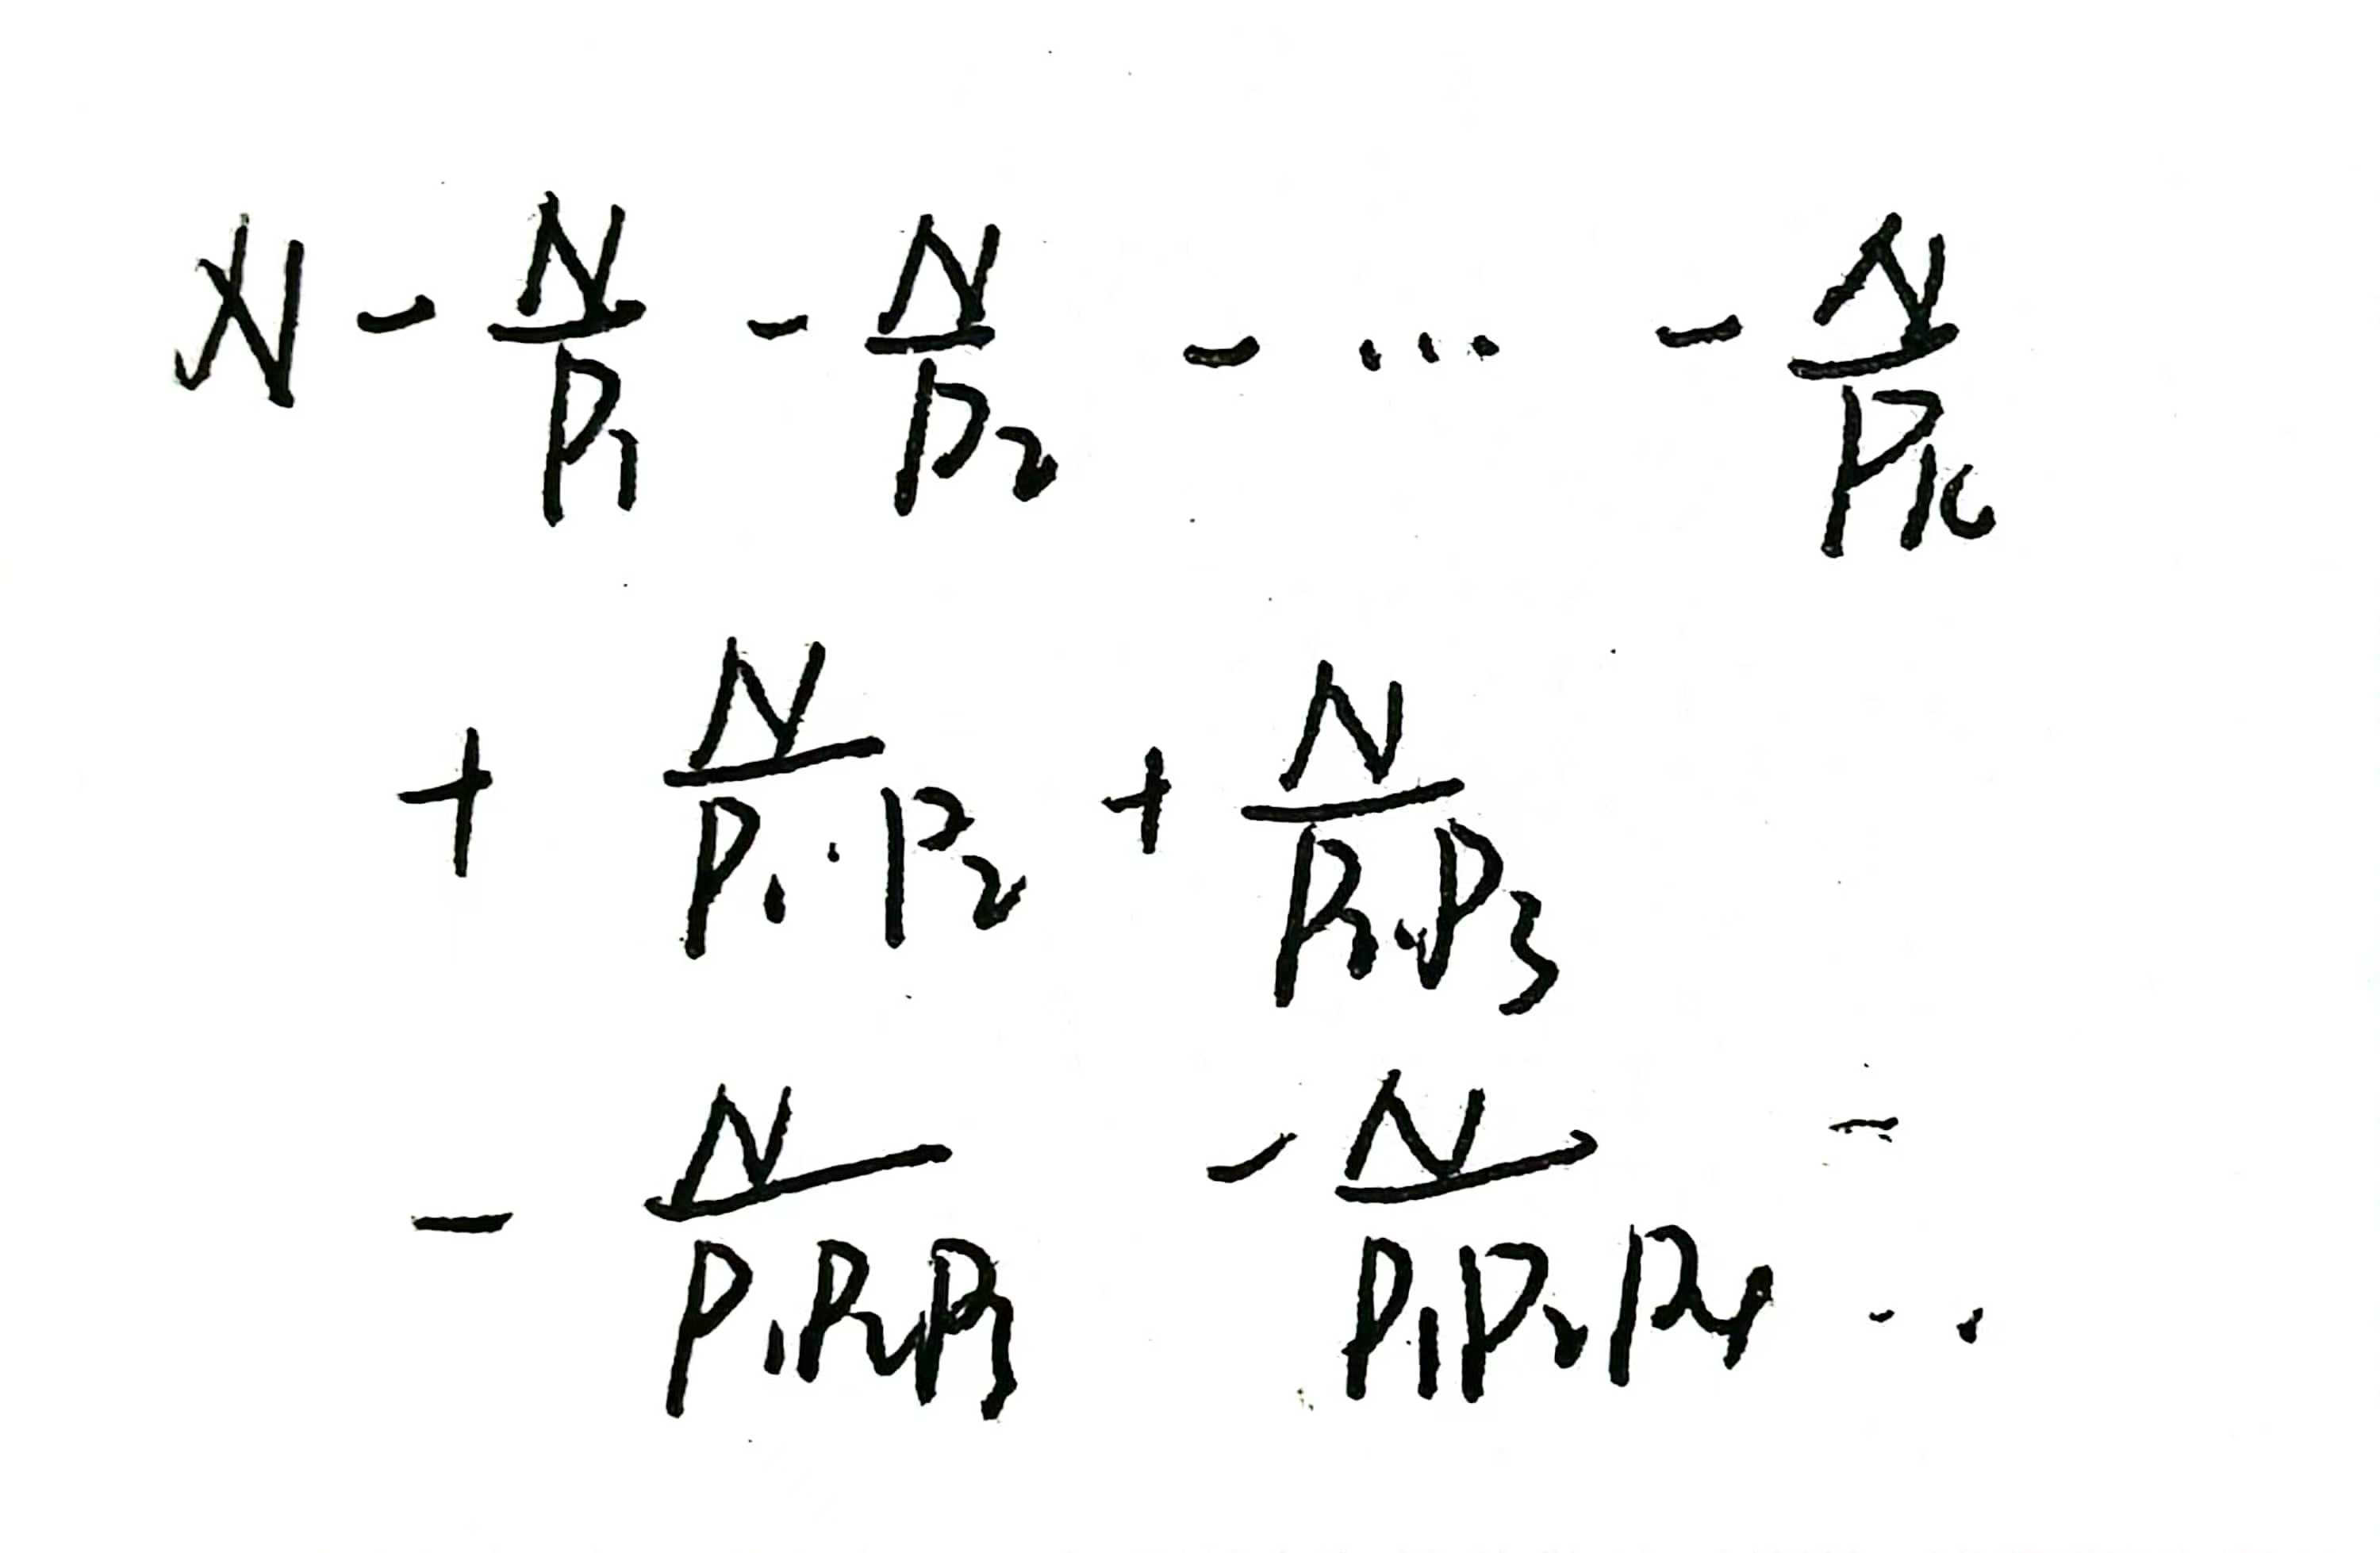 N - N/P₁ - N/P₂ - ... - N/Pₖ
+ N/(P₁·P₂) + N/(P₂·P₃)
- N/(P₁P₂P₃) - N/(P₁P₂P₄) - ..